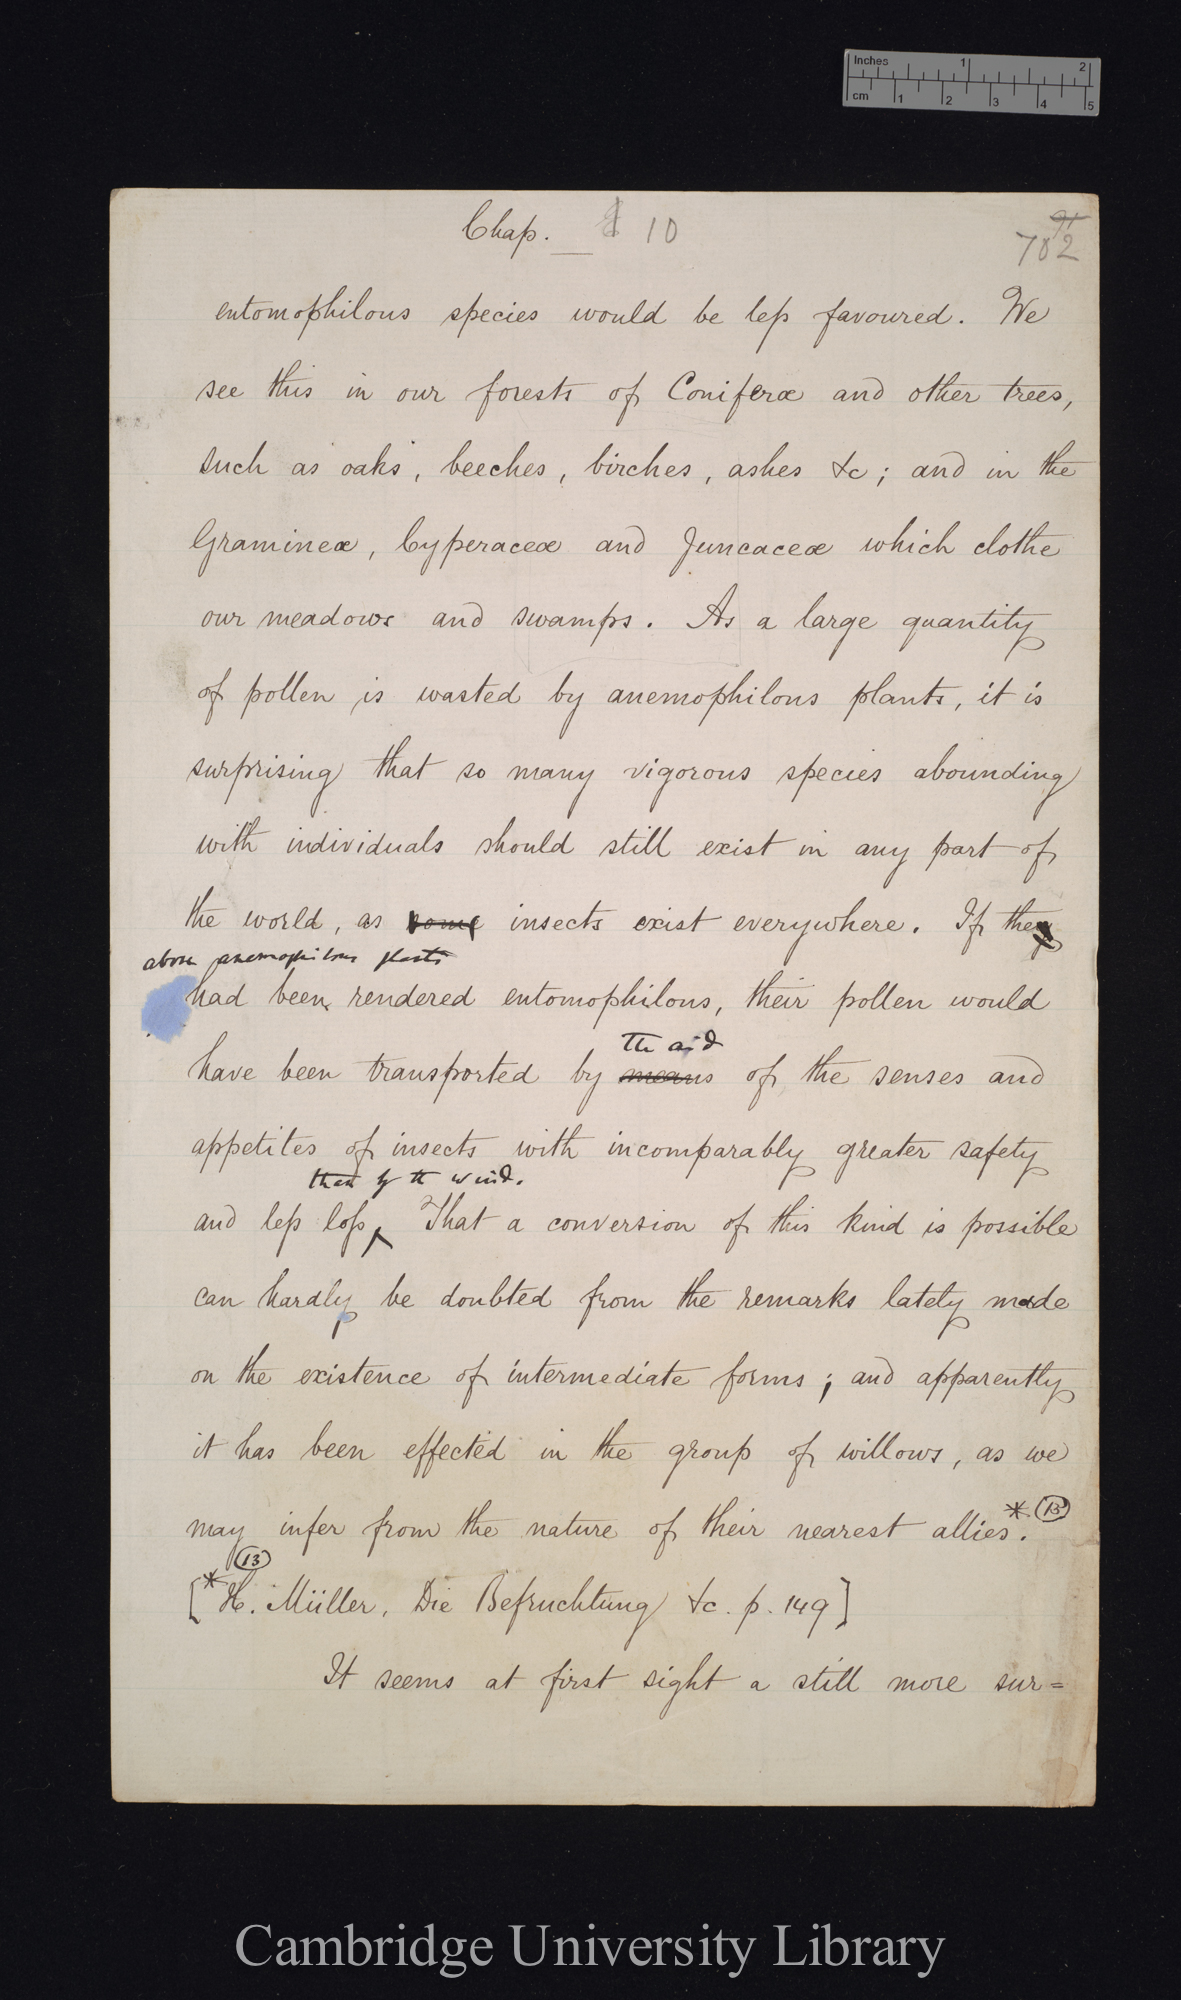 Inches 1 2
cm 1 2 3 4 5
Chap. 10
91
702
entomophilous species would be less favoured. We
see this in our forests of Coniferæ and other trees,
such as oaks, beeches, birches, ashes &c; and in the
Gramineæ, Cyperaceæ and Juncaceæ which clothe
our meadows and swamps. As a large quantity
of pollen is wasted by anemophilous plants, it is
surprising that so many vigorous species abounding
with individuals should still exist in any part of
the world, as some insects exist everywhere. If they
above anemophilous plants
had been rendered entomophilous, their pollen would
the aid
have been transported by means of the senses and
appetites of insects with incomparably greater safety
than by the wind.
and less loss, That a conversion of this kind is possible
can hardly be doubted from the remarks lately made
on the existence of intermediate forms; and apparently
it has been effected in the group of willows, as we
may infer from the nature of their nearest allies*. (13)
(13)
[* H. Müller, Die Befruchtung &c. p. 149]
It seems at first sight a still more sur=
Cambridge University Library